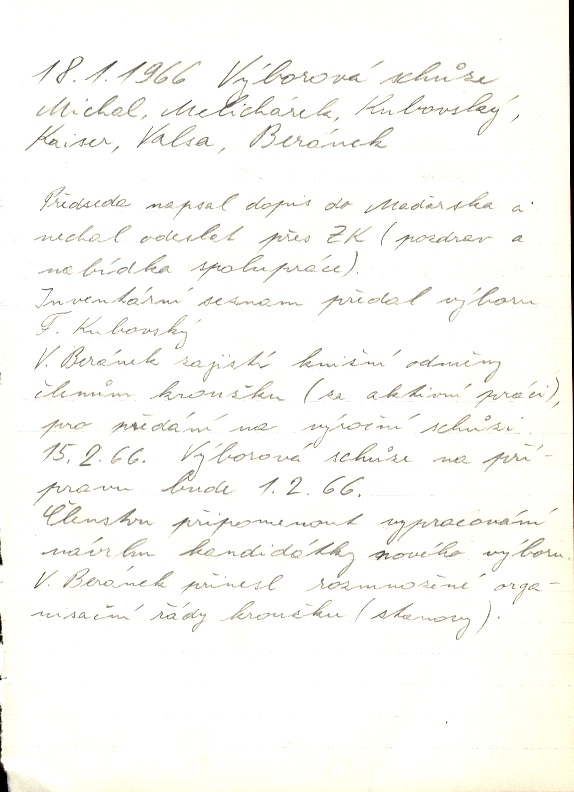 18.1.1966 Výborová schůze
Michal, Melichárek, Kubovský,
Kaiser, Valsa, Beránek
Předseda napsal dopis do Maďarska a
nechal odeslat přes ZK (pozdrav a
nabídka spolupráce).
Inventární seznam předal výboru
F. Kubovský
V. Beránek zajistí knižní odměny
členům kroužku (za aktivní práci),
pro předání na výroční schůzi
15.2.66. Výborová schůze na pří-
pravu bude 1.2.66.
Členstvu připomenout vypracování
návrhu kandidátky nového výboru.
V. Beránek přinesl rozmnožené orga-
nisační řády kroužku (stanovy).